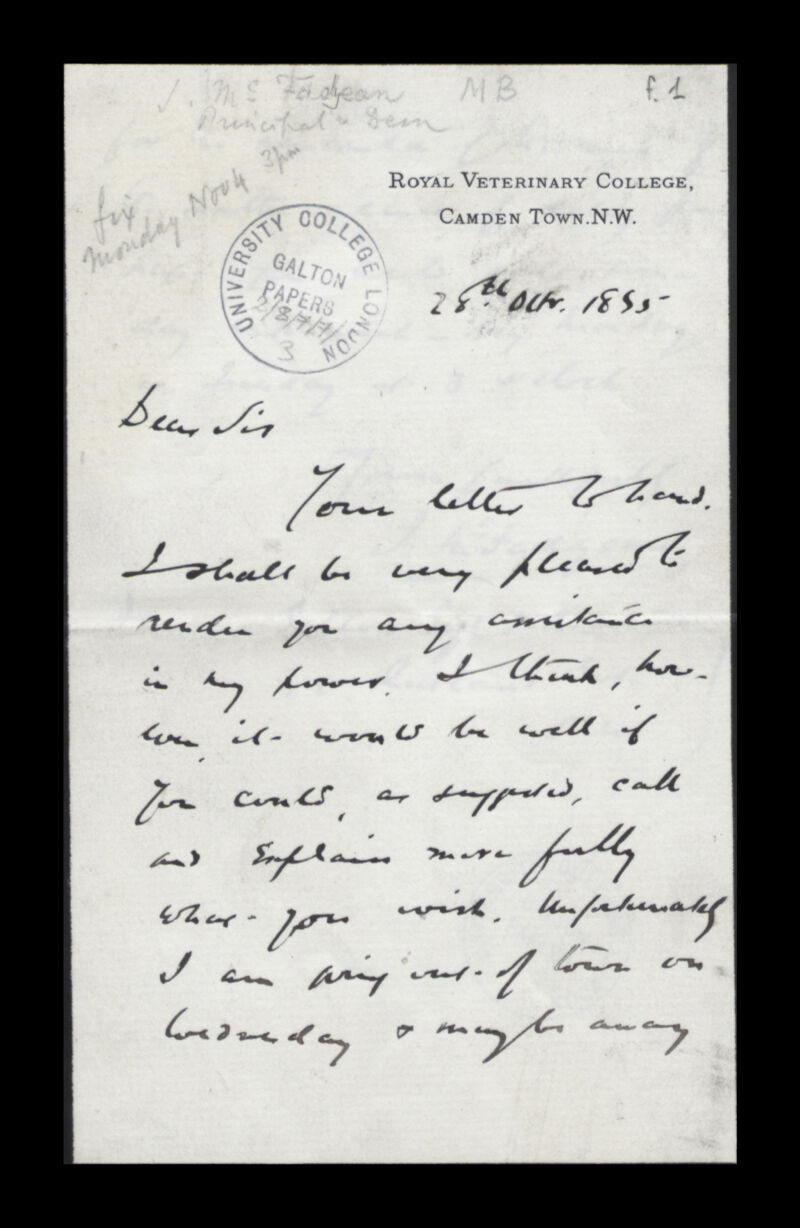 J. McFadyean MB f.1
Principal & Dean
fix
Monday Nov 4 3pm
ROYAL VETERINARY COLLEGE,
CAMDEN TOWN.N.W.
UNIVERSITY COLLEGE LONDON
GALTON
PAPERS
3
28th Octr. 1895
Dear Sir
Your letter to hand.
I shall be very pleased to
render you any assistance
in my power. I think, how-
ever, it would be well if
you could, as suggested, call
and explain more fully
what you wish. Unfortunately
I am going out of town on
Wednesday & may be away